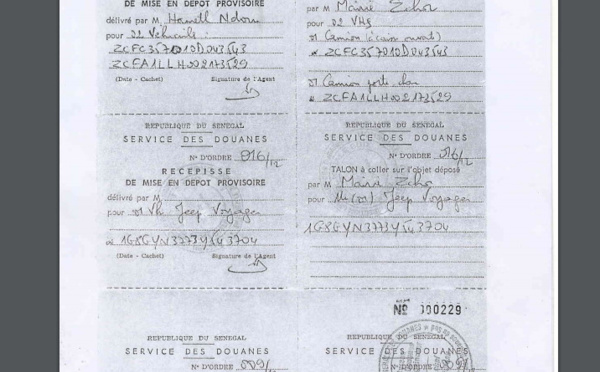 DE MISE EN DEPOT PROVISOIRE
délivré par M
pour 02 Véhicules
ZCFC357010D043543
ZCFA1LLH002173529
(Date - Cachet) Signature de l'Agent
par M
pour 02 VHS
01 Camion
ZCFC357010D043543
01 Camion porte char
ZCFA1LLH002173529
REPUBLIQUE DU SENEGAL
SERVICE DES DOUANES
N° D'ORDRE 016/12
RECEPISSE
DE MISE EN DEPOT PROVISOIRE
délivré par M
pour 01 Vh Jeep Voyager
1G8GYN3773Y543704
(Date - Cachet) Signature de l'Agent
REPUBLIQUE DU SENEGAL
SERVICE DES DOUANES
N° D'ORDRE 016/12
TALON à coller sur l'objet déposé
par M
pour Jeep Voyager
1G8GYN3773Y543704
REPUBLIQUE DU SENEGAL
SERVICE DES DOUANES
N° D'ORDRE 009/
Nº 000229
REPUBLIQUE DU SENEGAL
SERVICE DES DOUANES
N° D'ORDRE